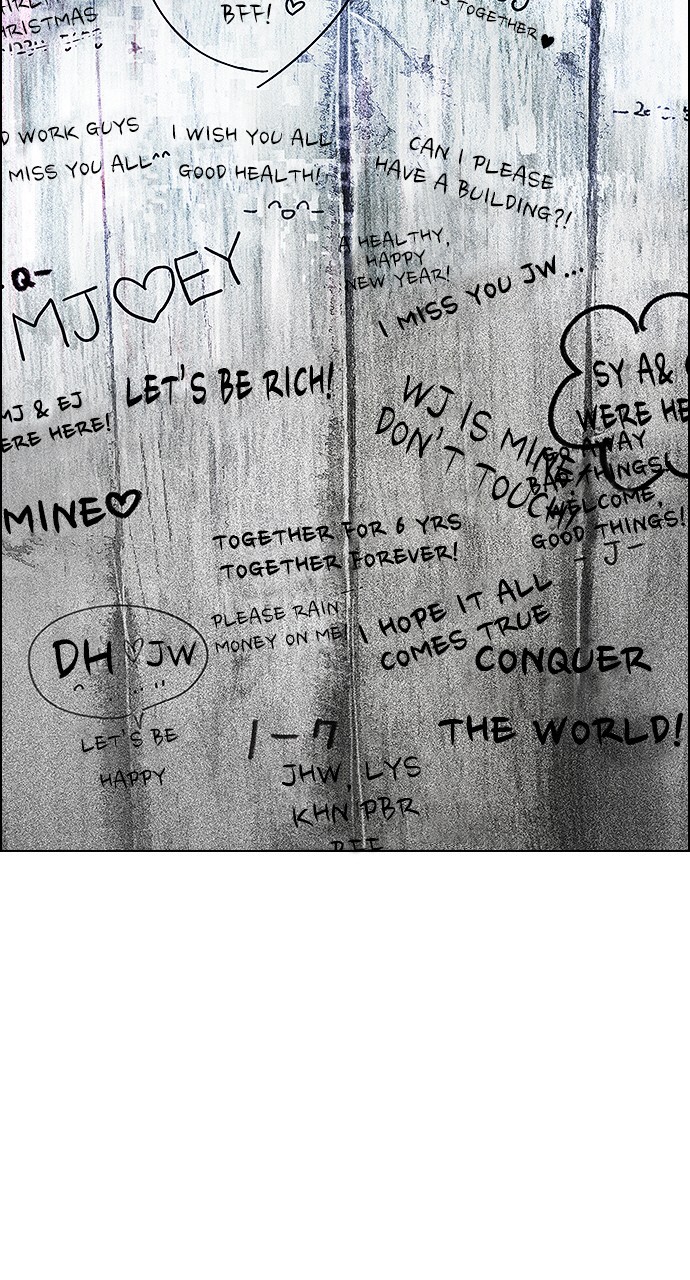 CHRISTMAS
BFF!
TOGETHER
WORK GUYS
MISS YOU ALL^^
I WISH YOU ALL
GOOD HEALTH!
CAN I PLEASE
HAVE A BUILDING?!
A HEALTHY,
HAPPY
NEW YEAR!
I MISS YOU JW...
Q-
MJ♡EY
LET'S BE RICH!
MJ & EJ
ERE HERE!
WJ IS MINE
DON'T TOUCH!
SY A&
WERE HE
AWAY
BAD THINGS!
WELCOME,
GOOD THINGS!
- J -
MINE♡
TOGETHER FOR 6 YRS
TOGETHER FOREVER!
PLEASE RAIN
MONEY ON ME
I HOPE IT ALL
COMES TRUE
DH♡JW
LET'S BE
HAPPY
CONQUER
THE WORLD!
1-7
JHW, LYS
KHN PBR
BFF